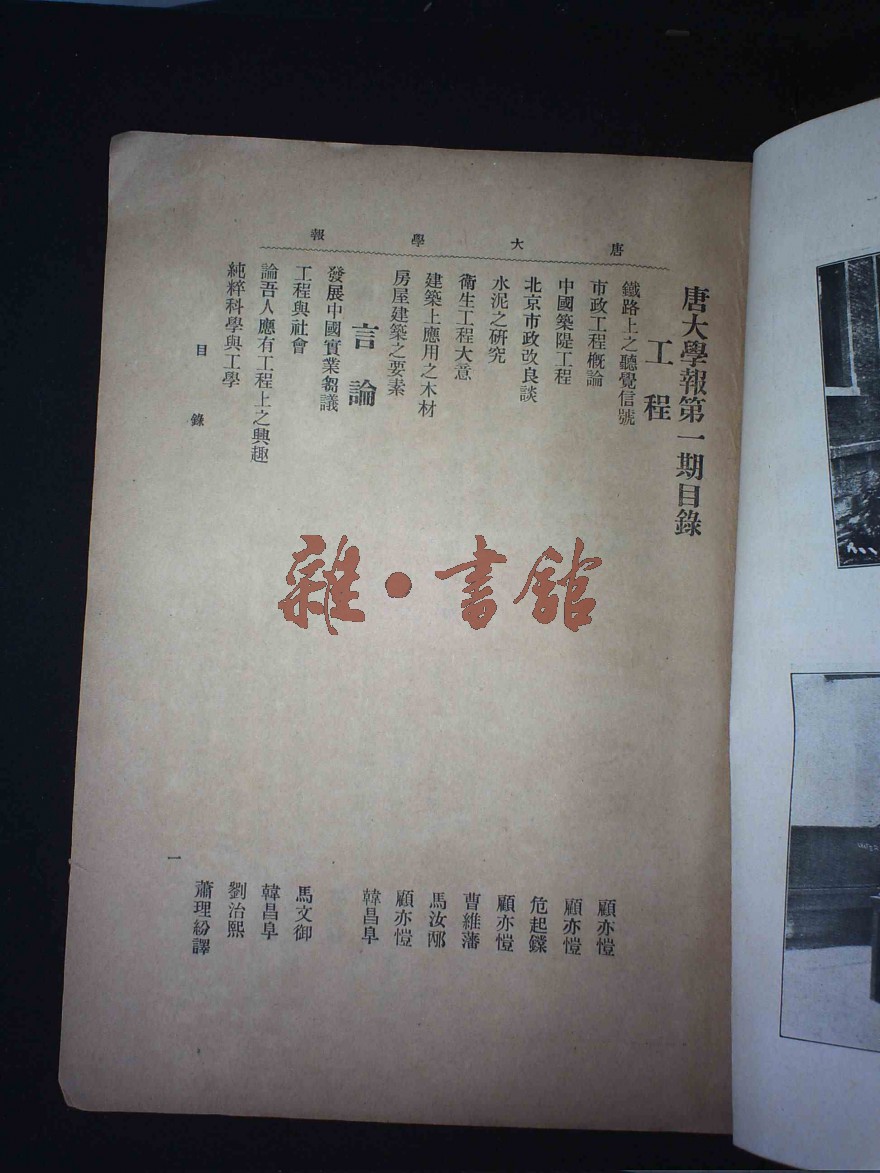 唐大學報
唐大學報第一期目錄
工程
鐵路上之聽覺信號 顧亦愷
市政工程概論 顧亦愷
中國築隄工程 危起
北京市政改良談 顧亦愷
水泥之研究 曹維藩
衛生工程大意 馬汝邴
建築上應用之木材 顧亦愷
房屋建築之要素 韓昌阜
言論
發展中國實業芻議 馬文御
工程與社會 韓昌阜
論吾人應有工程上之興趣 劉治熙
純粹科學與工學 蕭理紛譯
目錄 一
雜·書館